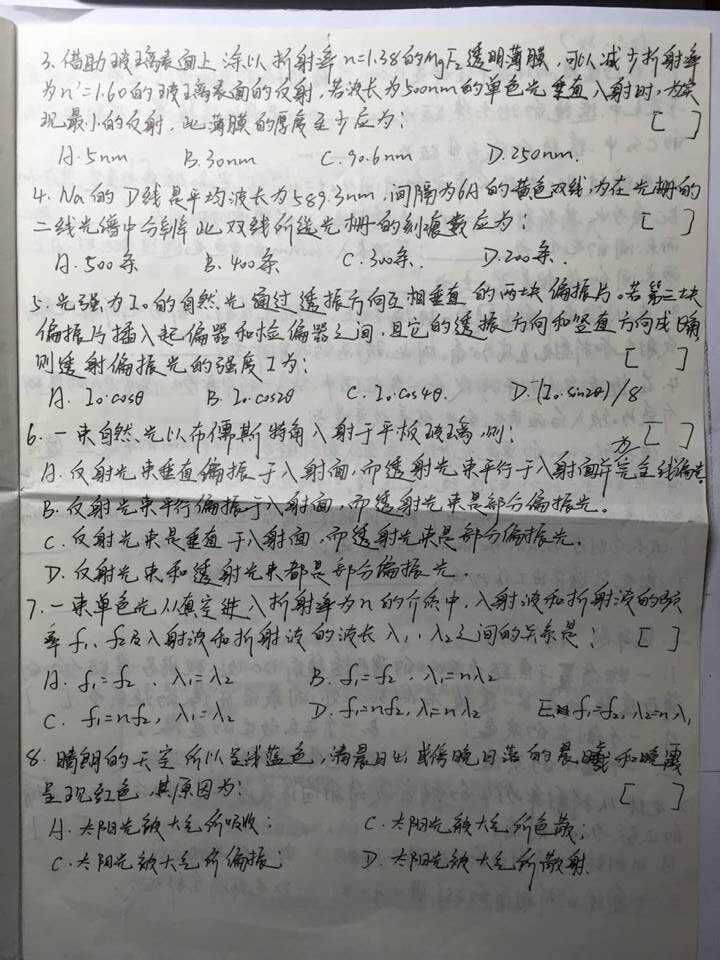 3. 借助玻璃表面上涂以折射率n=1.38的MgF₂透明薄膜,可以减少折射率
为n'=1.60的玻璃表面的反射,若波长为500nm的单色光垂直入射时,为实
现最小的反射,此薄膜的厚度至少应为: [ ]
A. 5nm B. 30nm C. 90.6nm D. 250nm.
4. Na的D线是平均波长为589.3nm,间隔为6A的黄色双线,为在光栅的
二级光谱中分辨此双线所选光栅的刻痕数应为: [ ]
A. 500条 B. 400条 C. 300条. D. 200条.
5. 光强为I₀的自然光通过透振方向互相垂直的两块偏振片。若第三块
偏振片插入起偏器和检偏器之间,且它的透振方向和竖直方向成θ角
则透射偏振光的强度I为: [ ]
A. I₀·cosθ B. I₀·cos2θ C. I₀·cos4θ. D. (I₀·sin2θ)/8
6. 一束自然光以布儒斯特角入射于平板玻璃,则: [ ]
A. 反射光束垂直偏振于入射面,而透射光束平行于入射面并为完全线偏光
B. 反射光束平行偏振于入射面,而透射光束是部分偏振光。
C. 反射光束是垂直于入射面,而透射光束是部分偏振光.
D. 反射光束和透射光束都是部分偏振光.
7. 一束单色光从真空进入折射率为n的介质中,入射波和折射波的频
率f₁、f₂及入射波和折射波的波长λ₁、λ₂之间的关系是: [ ]
A. f₁=f₂、λ₁=λ₂ B. f₁=f₂、λ₁=nλ₂
C. f₁=nf₂, λ₁=λ₂ D. f₁=nf₂, λ₁=nλ₂ E. f₁=f₂, λ₂=nλ₁
8. 晴朗的天空所以呈浅蓝色,清晨日出或傍晚日落的晨曦和晚霞
呈现红色,其原因为: [ ]
A. 太阳光被大气所吸收; C. 太阳光被大气所色散;
C. 太阳光被大气所偏振; D. 太阳光被大气所散射.